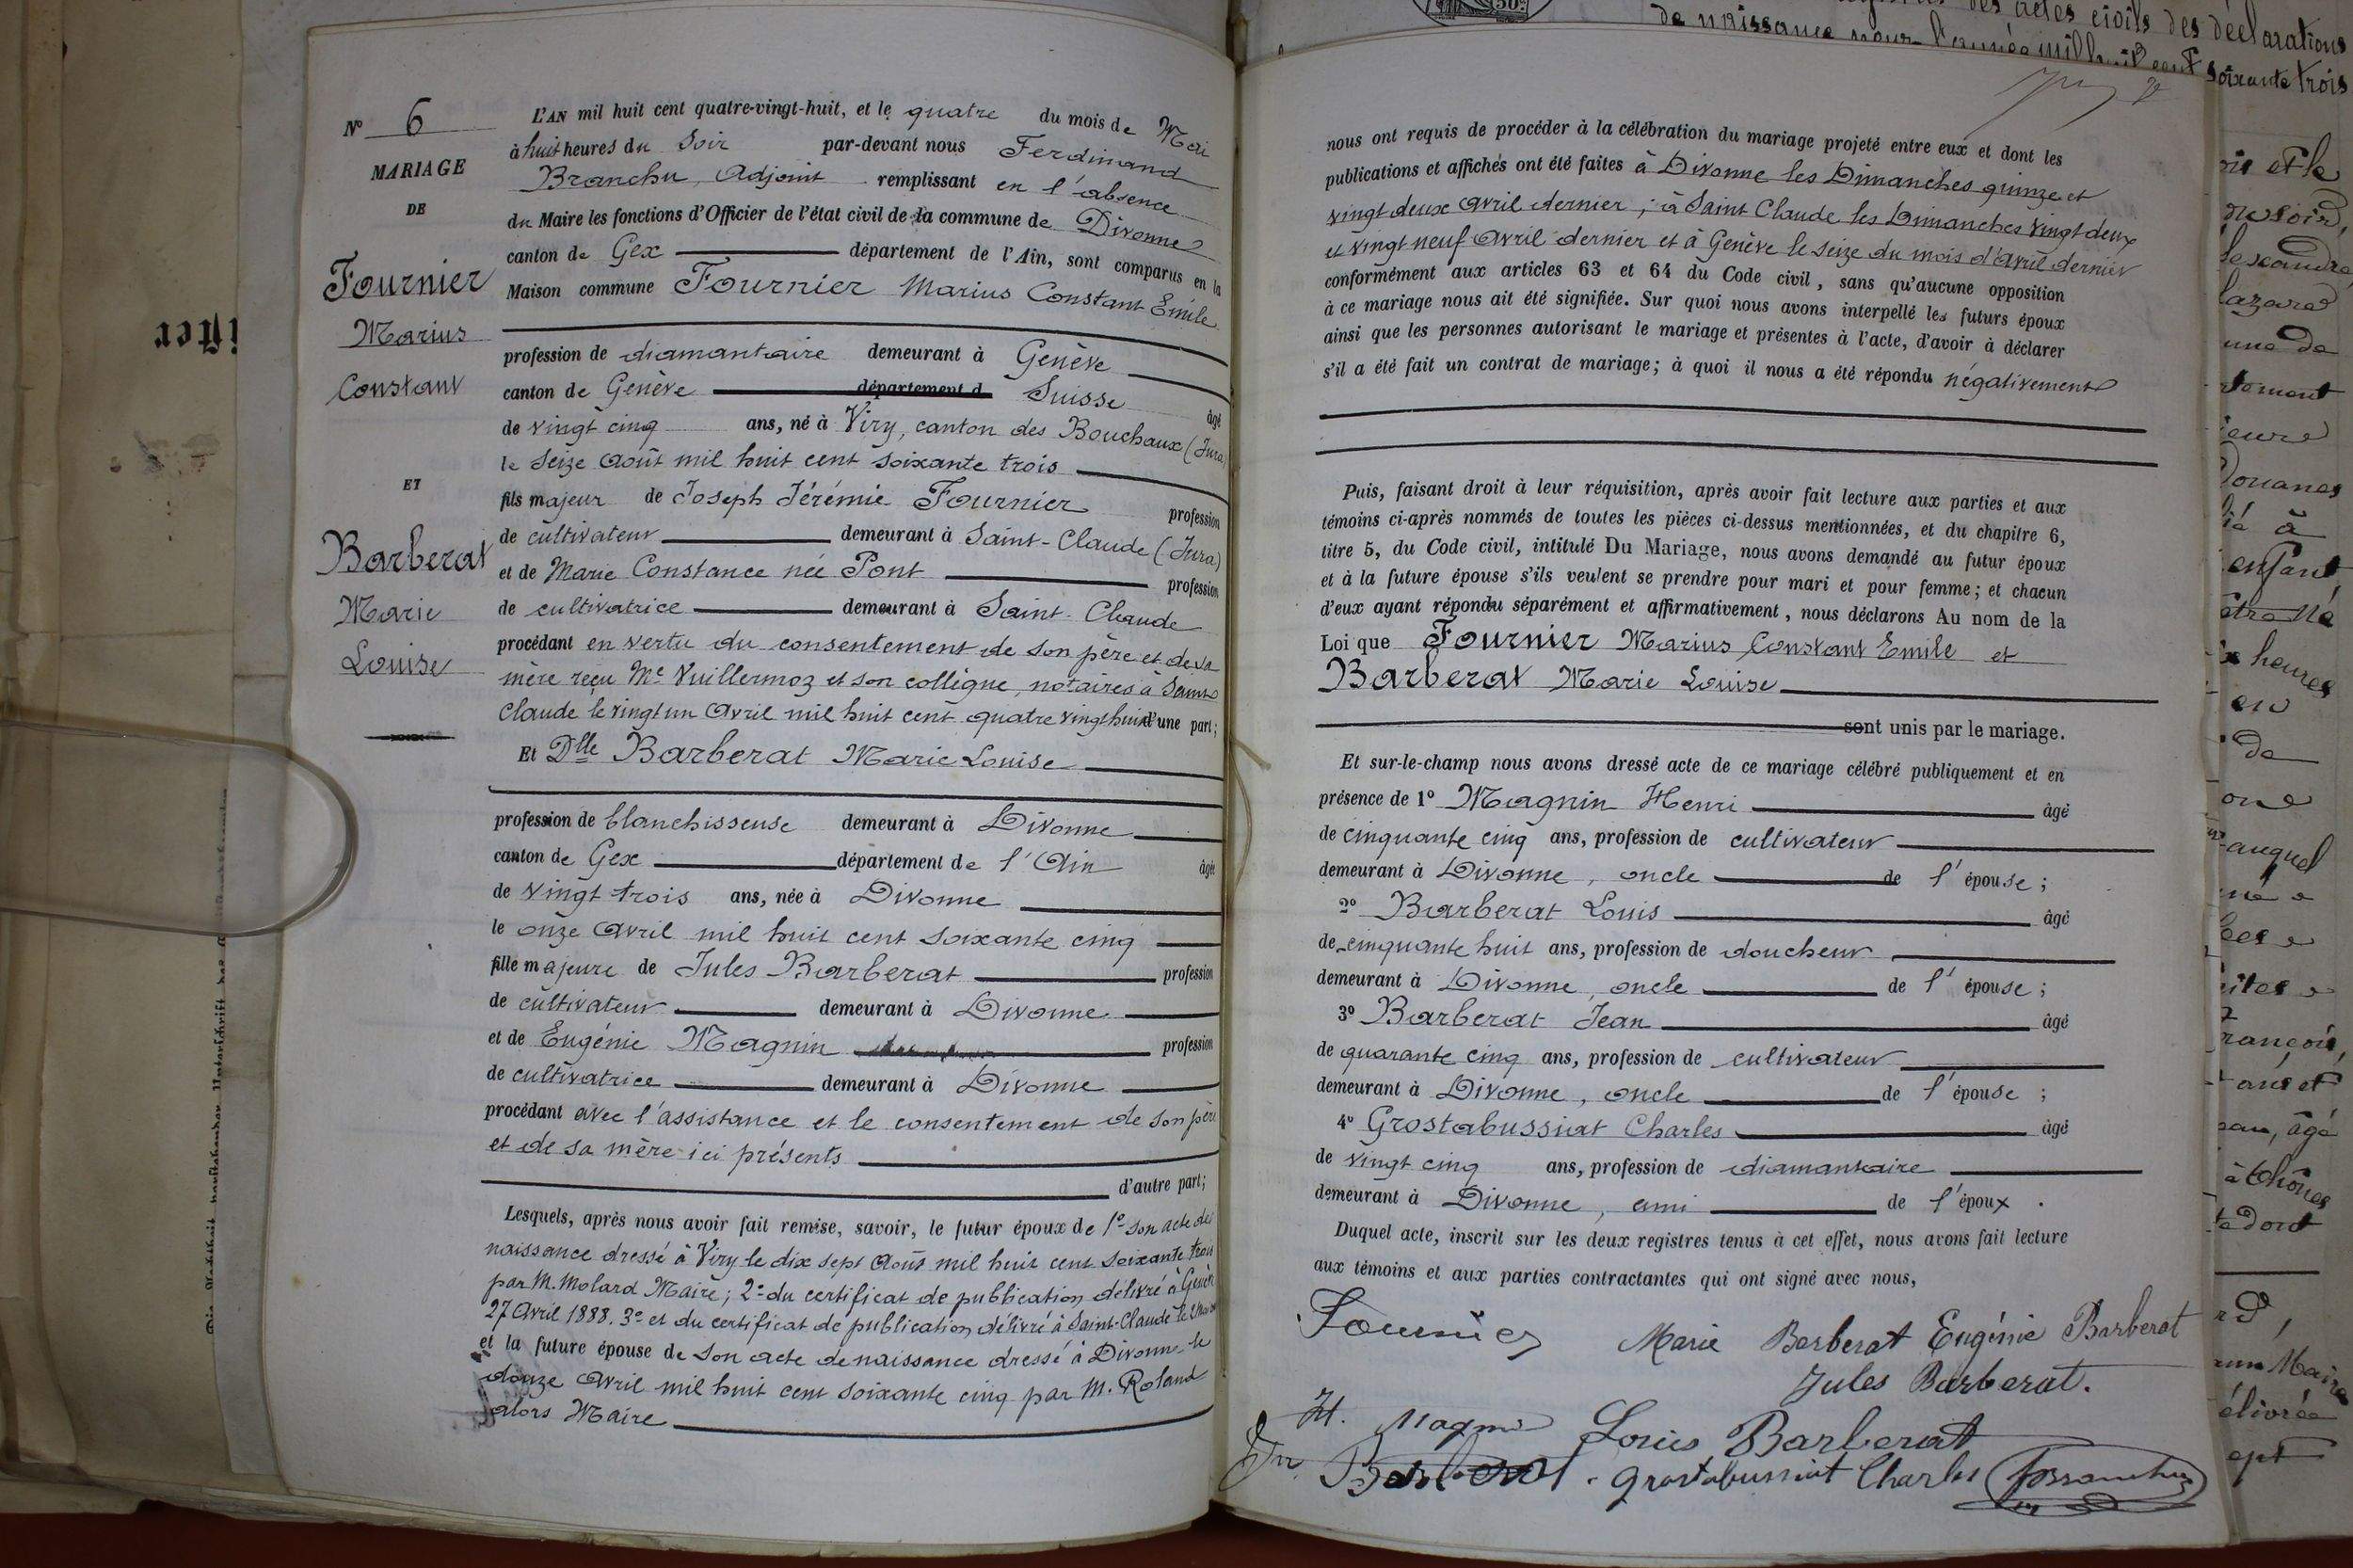 N° 6
MARIAGE
DE
Fournier
Marius
Constant
ET
Barberat
Marie
Louise
L'AN mil huit cent quatre-vingt-huit, et le quatre du mois de Mai
à huit heures du Soir par-devant nous Ferdinand
Branchu, Adjoint remplissant en l'absence
du Maire les fonctions d'Officier de l'état civil de la commune de Divonne
canton de Gex département de l'Ain, sont comparus en la
Maison commune Fournier Marius Constant Emile
profession de diamantaire demeurant à Genève
canton de Genève département d Suisse âgé
de vingt cinq ans, né à Viry, canton des Bouchaux (Jura)
le Seize Août mil huit cent soixante trois
fils majeur de Joseph Jérémie Fournier profession
de cultivateur demeurant à Saint-Claude (Jura)
et de Marie Constance née Pont profession
de cultivatrice demeurant à Saint-Claude
procédant en vertu du consentement de son père et de sa
mère reçu Me Vuillermoz et son collègue, notaires à Saint
Claude le vingt un Avril mil huit cent quatre vingt huit d'une part;
Et Dlle Barberat Marie Louise
profession de blanchisseuse demeurant à Divonne
canton de Gex département de l'Ain âgée
de vingt trois ans, née à Divonne
le onze Avril mil huit cent soixante cinq
fille majeure de Jules Barberat profession
de cultivateur demeurant à Divonne
et de Eugénie Magnin profession
de cultivatrice demeurant à Divonne
procédant avec l'assistance et le consentement de son père
et de sa mère ici présents
d'autre part;
Lesquels, après nous avoir fait remise, savoir, le futur époux de 1° son acte de
naissance dressé à Viry le dix sept Août mil huit cent soixante trois
par M. Molard Maire; 2° du certificat de publication délivré à Genève
27 Avril 1888. 3° et du certificat de publication délivré à Saint-Claude le 2 Mai
et la future épouse de son acte de naissance dressé à Divonne le
douze Avril mil huit cent soixante cinq par M. Roland
alors Maire
nous ont requis de procéder à la célébration du mariage projeté entre eux et dont les
publications et affichés ont été faites à Divonne les Dimanches quinze et
vingt deux Avril dernier; à Saint Claude les Dimanches vingt deux
et vingt neuf Avril dernier et à Genève le seize du mois d'Avril dernier
conformément aux articles 63 et 64 du Code civil, sans qu'aucune opposition
à ce mariage nous ait été signifiée. Sur quoi nous avons interpellé les futurs époux
ainsi que les personnes autorisant le mariage et présentes à l'acte, d'avoir à déclarer
s'il a été fait un contrat de mariage; à quoi il nous a été répondu négativement
Puis, faisant droit à leur réquisition, après avoir fait lecture aux parties et aux
témoins ci-après nommés de toutes les pièces ci-dessus mentionnées, et du chapitre 6,
titre 5, du Code civil, intitulé Du Mariage, nous avons demandé au futur époux
et à la future épouse s'ils veulent se prendre pour mari et pour femme; et chacun
d'eux ayant répondu séparément et affirmativement, nous déclarons Au nom de la
Loi que Fournier Marius Constant Emile et
Barberat Marie Louise
sont unis par le mariage.
Et sur-le-champ nous avons dressé acte de ce mariage célébré publiquement et en
présence de 1° Magnin Henri âgé
de cinquante cinq ans, profession de cultivateur
demeurant à Divonne, oncle de l'épouse;
2° Barberat Louis âgé
de cinquante huit ans, profession de doucheur
demeurant à Divonne, oncle de l'épouse;
3° Barberat Jean âgé
de quarante cinq ans, profession de cultivateur
demeurant à Divonne, oncle de l'épouse;
4° Grostabussiat Charles âgé
de vingt cinq ans, profession de diamantaire
demeurant à Divonne, ami de l'époux.
Duquel acte, inscrit sur les deux registres tenus à cet effet, nous avons fait lecture
aux témoins et aux parties contractantes qui ont signé avec nous,
Fournier Marie Barberat Eugénie Barberat
Jules Barberat.
H. Magnin Louis Barberat
Barberat. Grostabussiat Charles Branchu
des actes civils des déclarations
de naissance pour l'année mil huit cent soixante trois